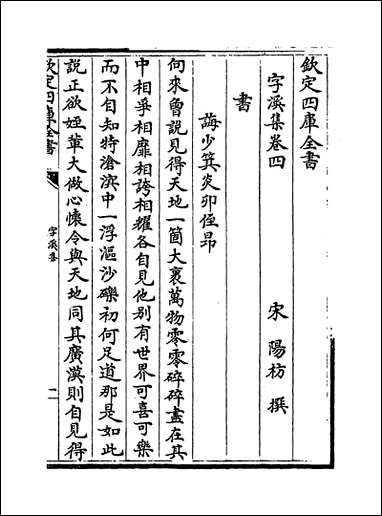 欽定四庫全書
字溪集卷四
宋 陽枋 撰
書
誨少箕炎卯侄昻
向來曾說見得天地一箇大裹萬物零零碎碎盡在其
中相爭相靡相誇相耀各自見他别有世界可喜可樂
而不自知特滄溟中一浮漚沙礫初何足道那是如此
說正欲姪輩大做心懷令與天地同其廣漠則自見得
欽定四庫全書
字溪集
二